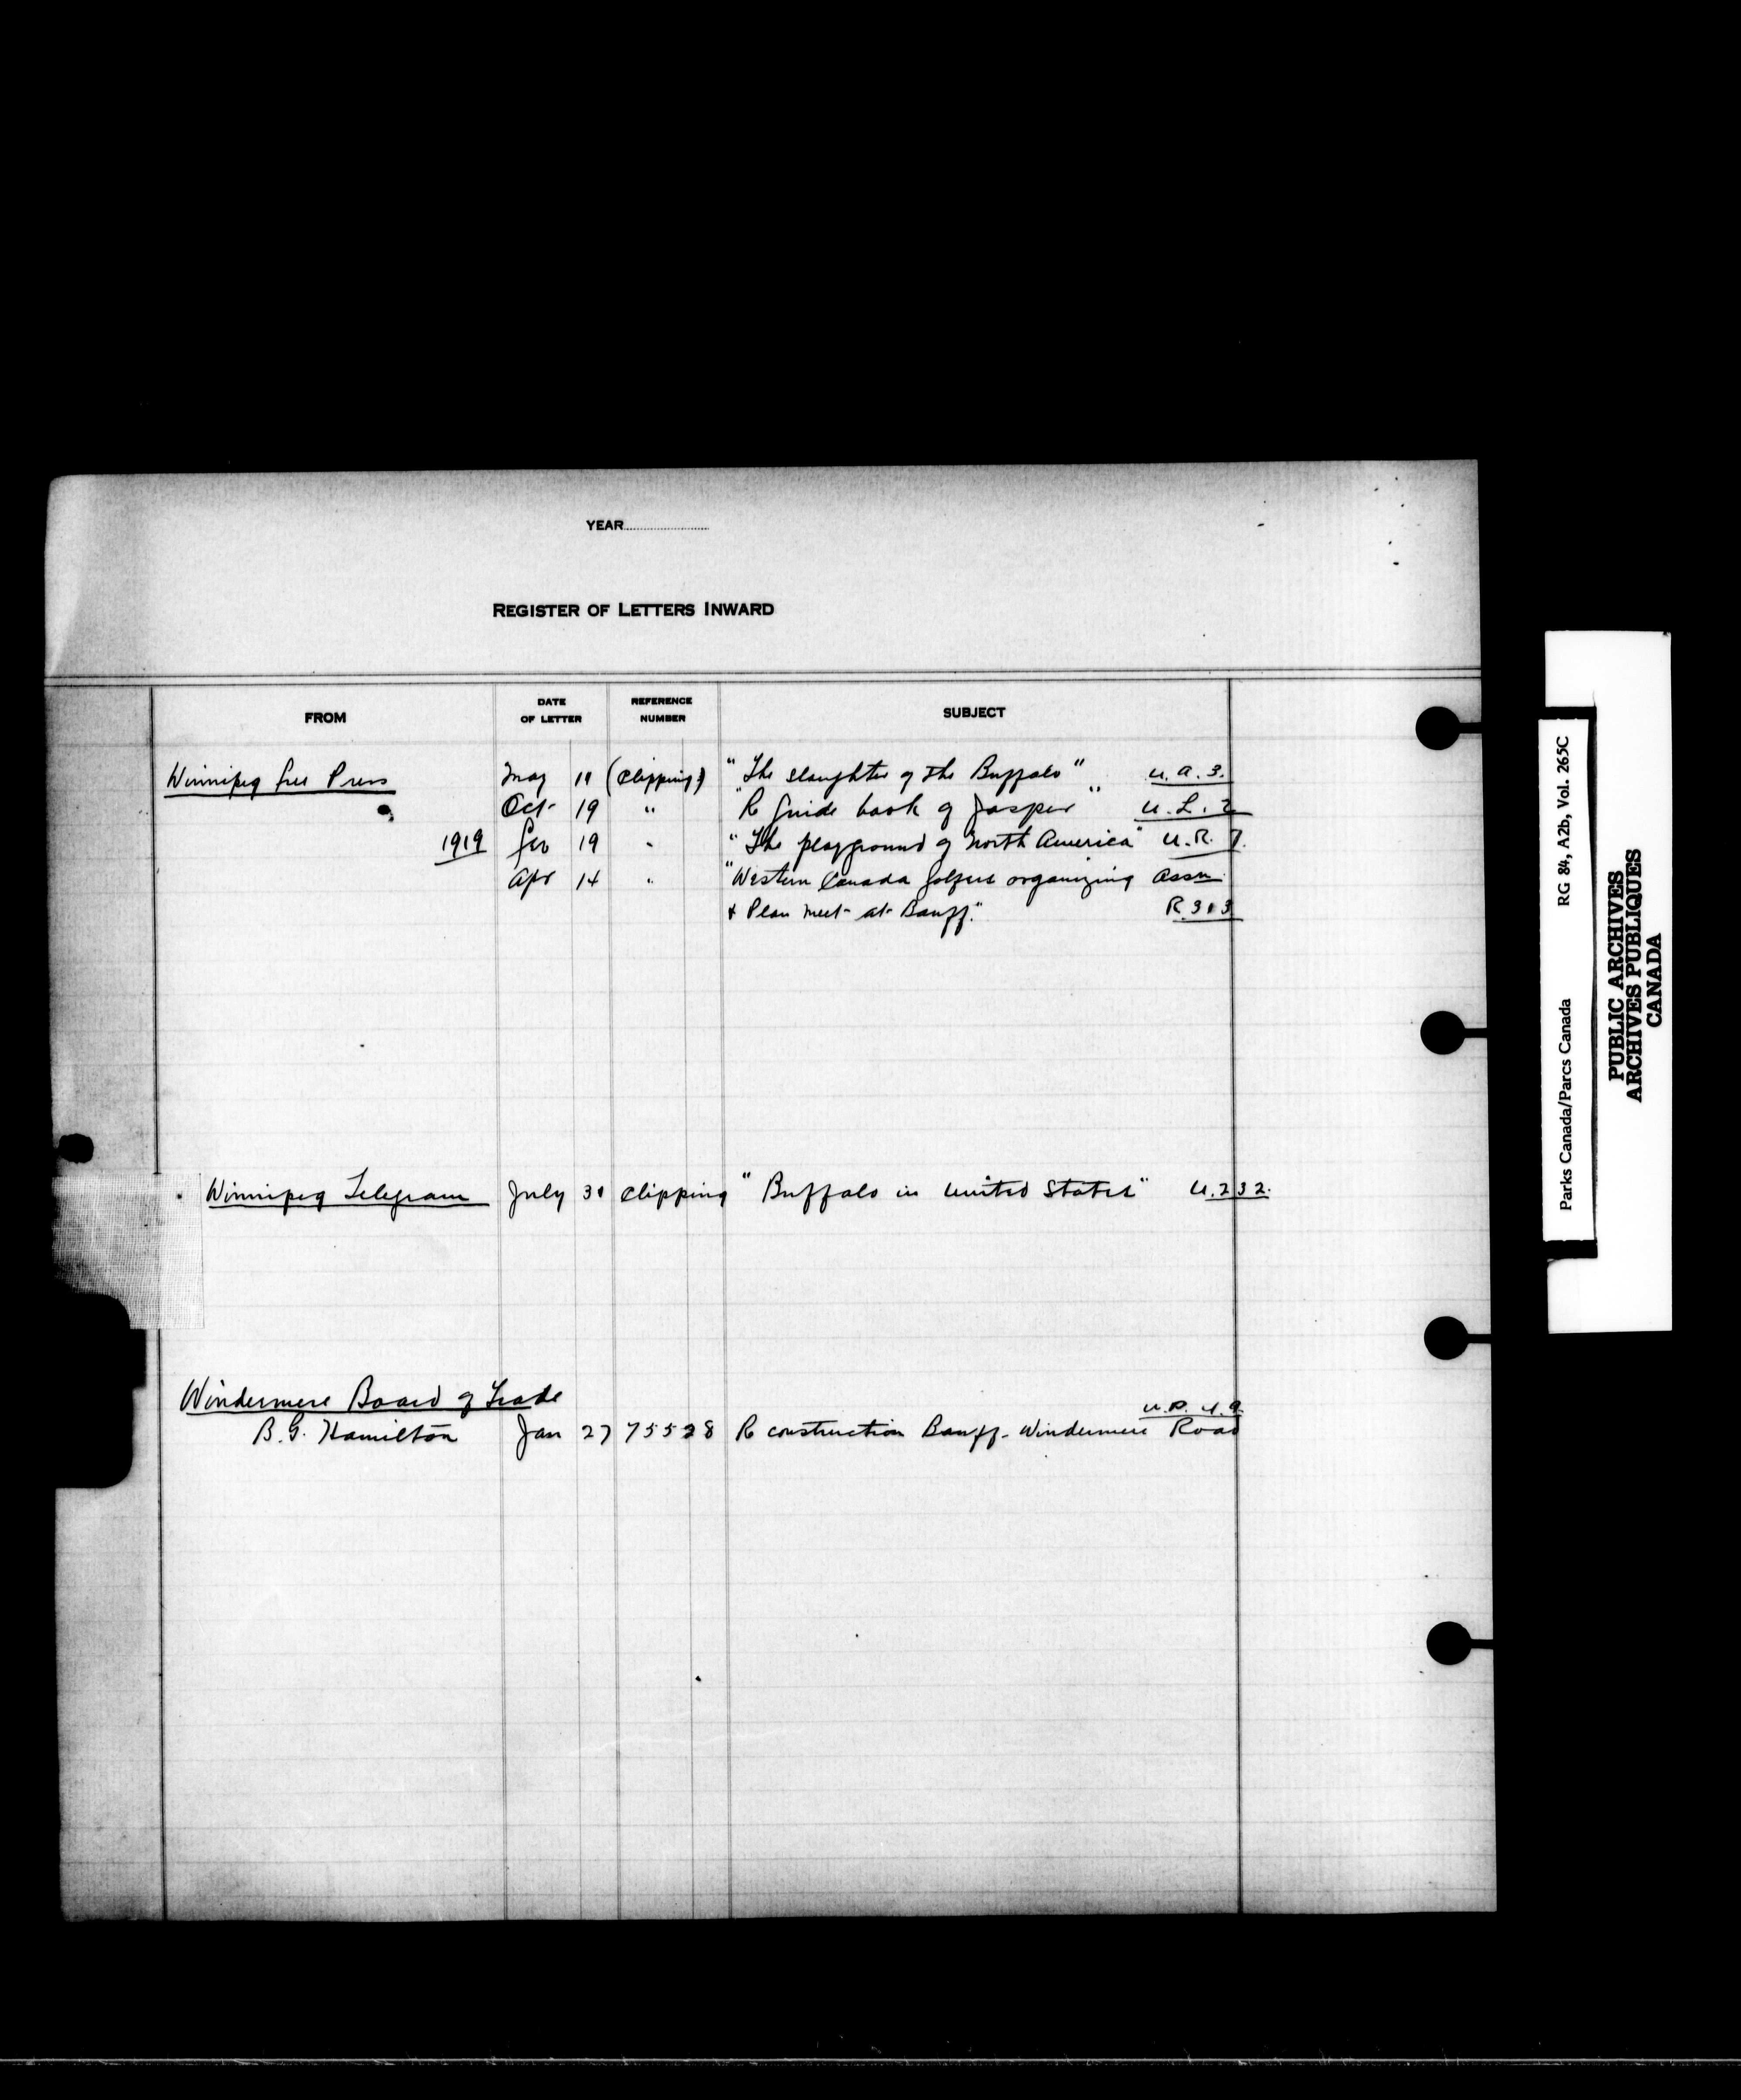 YEAR
REGISTER OF LETTERS INWARD
FROM DATE OF LETTER REFERENCE NUMBER SUBJECT
Winnipeg Free Press May 11 (Clipping) "The slaughter of the Buffalo" U.A.3.
Oct 19 " "R Guide book of Jasper" U.L.2
1919 Feb 19 " "The playground of North America" U.R.7.
Apr 14 " "Western Canada Golfers organizing Assn
& Plan meet at Banff." R.313
Winnipeg Telegram July 31 Clipping "Buffalo in United States" U.232.
Windermere Board of Trade
B.G. Hamilton Jan 27 75528 R construction Banff-Windermere Road
Parks Canada/Parcs Canada RG 84, A2b, Vol. 265C
PUBLIC ARCHIVES
ARCHIVES PUBLIQUES
CANADA